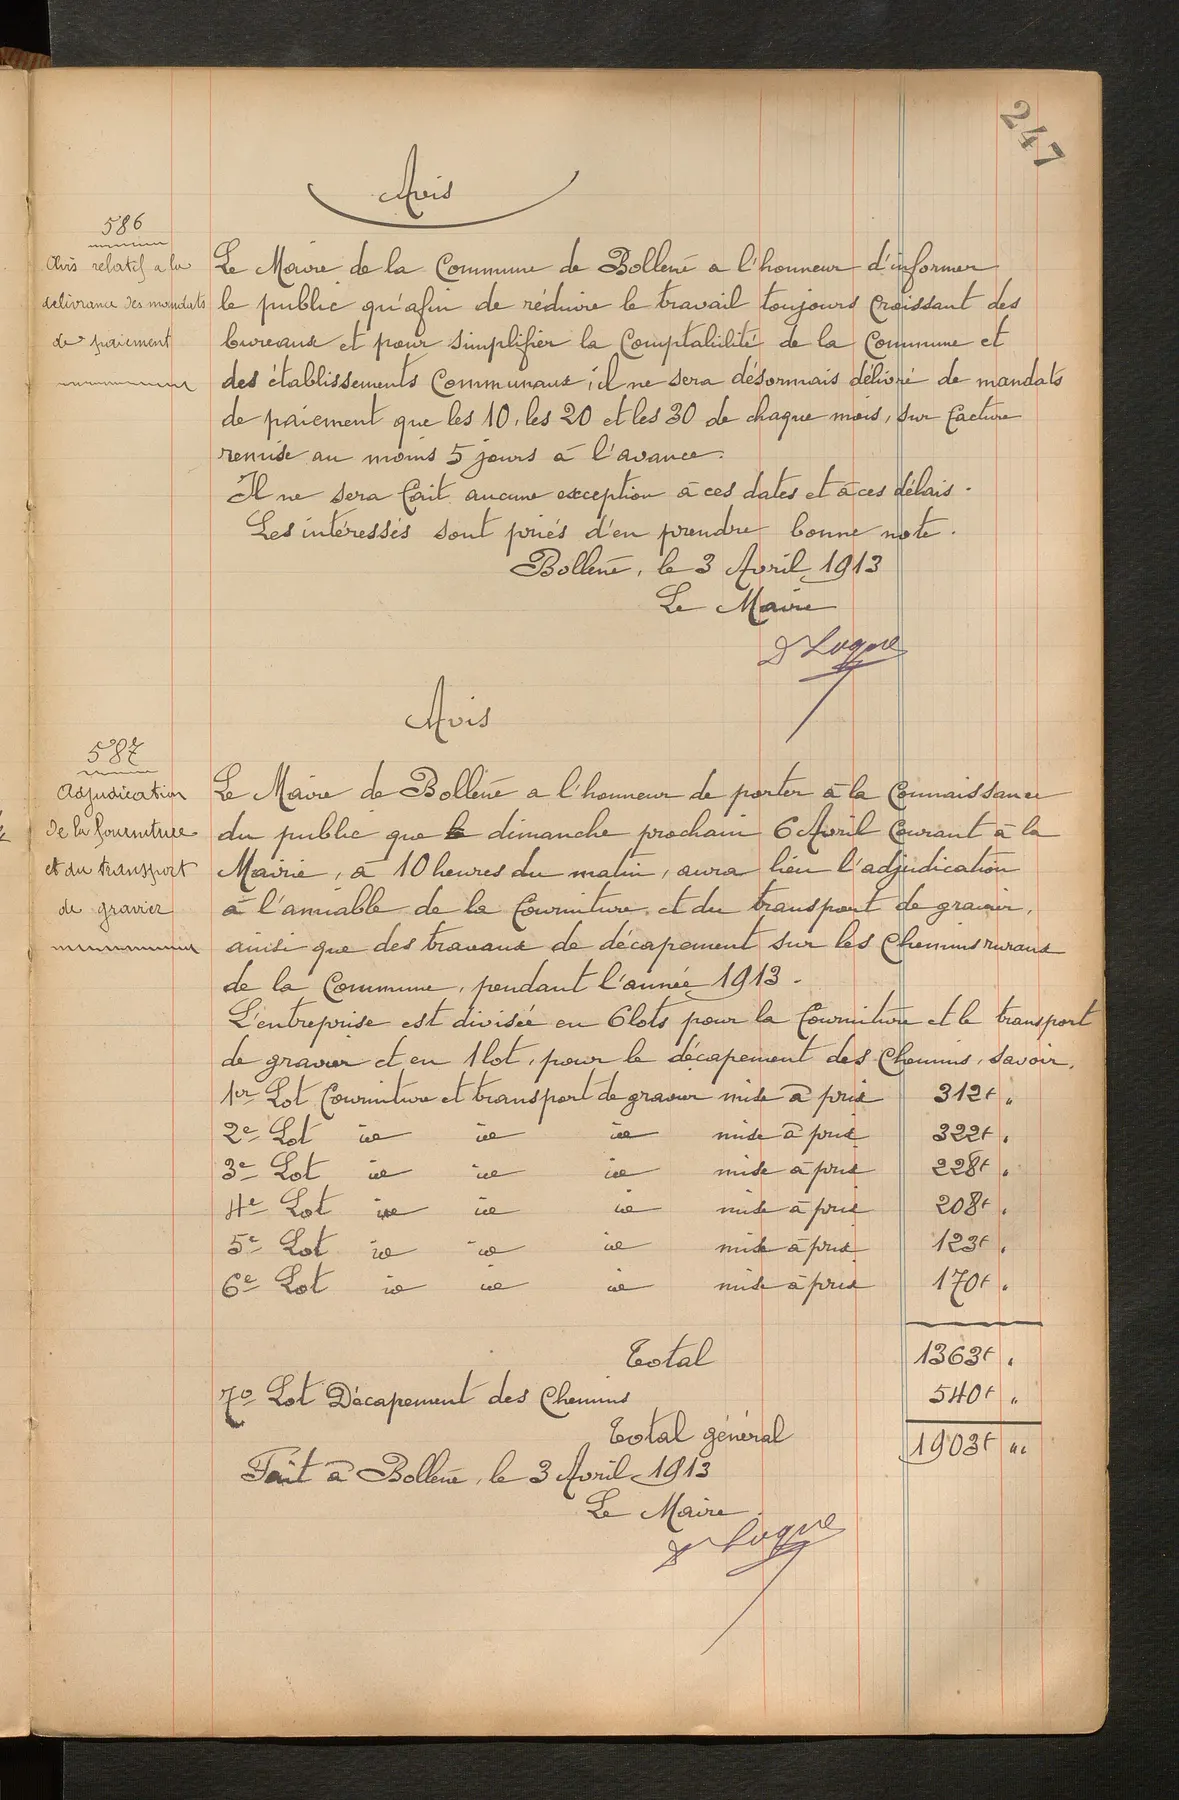 247
Avis
586
Avis relatif a la
délivrance des mandats
de paiement
Le Maire de la Commune de Bollène a l'honneur d'informer
le public qu'afin de réduire le travail toujours croissant des
bureaux et pour simplifier la Comptabilité de la Commune et
des établissements Communaux, il ne sera désormais délivré de mandats
de paiement que les 10, les 20 et les 30 de chaque mois, sur facture
remise au moins 5 jours à l'avance.
Il ne sera fait aucune exception à ces dates et à ces délais.
Les intéressés sont priés d'en prendre bonne note.
Bollène, le 3 Avril 1913
Le Maire
Avis
587
Adjudication
de la fourniture
et du transport
de gravier
Le Maire de Bollène a l'honneur de porter à la Connaissance
du public que le dimanche prochain 6 Avril Courant à la
Mairie, à 10 heures du matin, aura lieu l'adjudication
à l'amiable de la fourniture et du transport de gravier,
ainsi que des travaux de décapement sur les Chemins ruraux
de la Commune, pendant l'année 1913.
L'entreprise est divisée en 6 lots pour la fourniture et le transport
de gravier et en 1 lot, pour le décapement des Chemins, savoir.
1er Lot fourniture et transport de gravier mise à prix 312f "
2e Lot id id id mise à prix 322f "
3e Lot id id id mise à prix 228f "
4e Lot id id id mise à prix 208f "
5e Lot id id id mise à prix 123f "
6e Lot id id id mise à prix 170f "
Total 1363f "
7e Lot Décapement des Chemins 540f "
Total général 1903f ""
Fait à Bollène, le 3 Avril 1913
Le Maire.